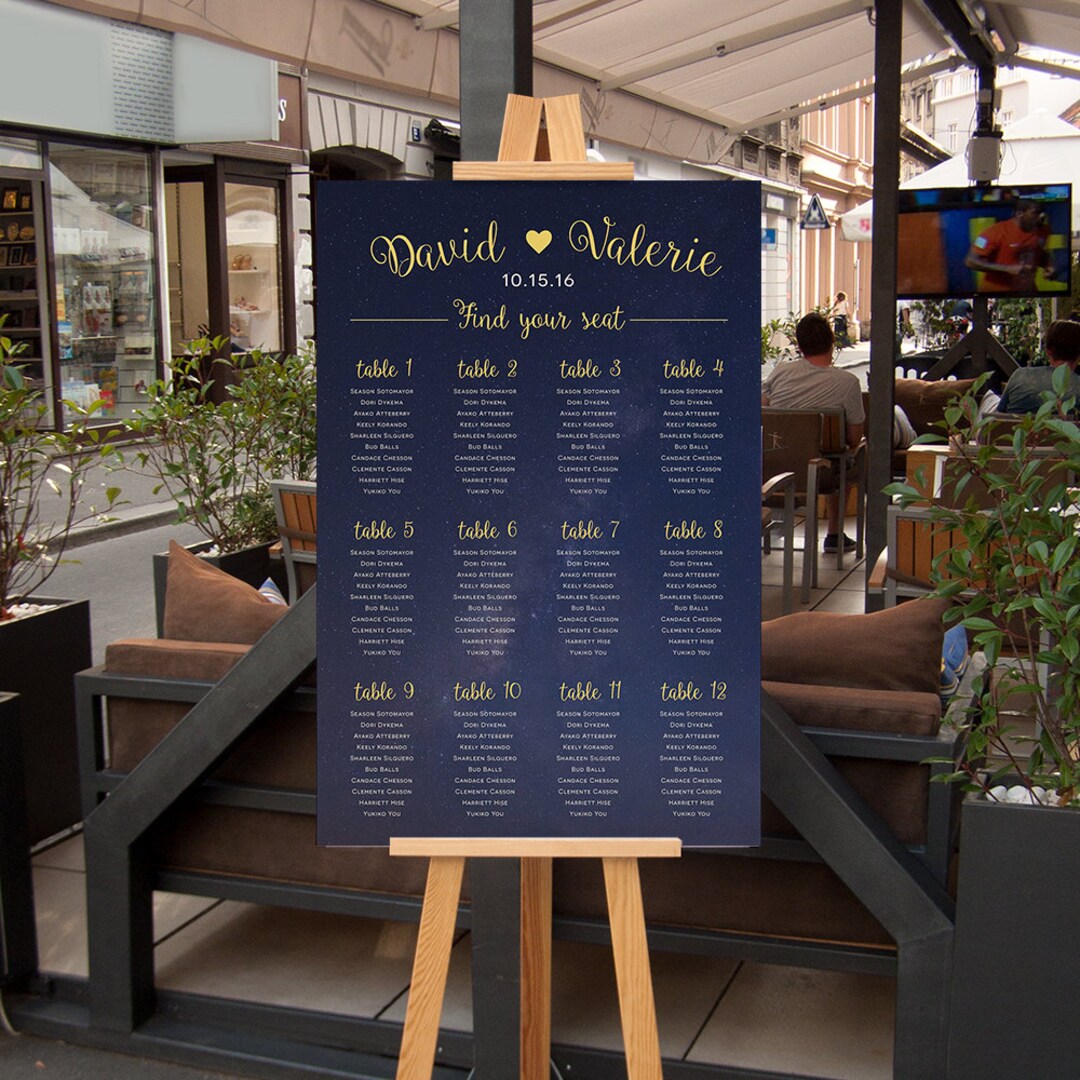 David ♥ Valerie
10.15.16
Find your seat
table 1
Season Sotomayor
Dori Dykema
Ayako Atteberry
Keely Korando
Sharleen Silguero
Bud Balls
Candace Chesson
Clemente Casson
Harriett Hise
Yukiko You
table 2
Season Sotomayor
Dori Dykema
Ayako Atteberry
Keely Korando
Sharleen Silguero
Bud Balls
Candace Chesson
Clemente Casson
Harriett Hise
Yukiko You
table 3
Season Sotomayor
Dori Dykema
Ayako Atteberry
Keely Korando
Sharleen Silguero
Bud Balls
Candace Chesson
Clemente Casson
Harriett Hise
Yukiko You
table 4
Season Sotomayor
Dori Dykema
Ayako Atteberry
Keely Korando
Sharleen Silguero
Bud Balls
Candace Chesson
Clemente Casson
Harriett Hise
Yukiko You
table 5
Season Sotomayor
Dori Dykema
Ayako Atteberry
Keely Korando
Sharleen Silguero
Bud Balls
Candace Chesson
Clemente Casson
Harriett Hise
Yukiko You
table 6
Season Sotomayor
Dori Dykema
Ayako Atteberry
Keely Korando
Sharleen Silguero
Bud Balls
Candace Chesson
Clemente Casson
Harriett Hise
Yukiko You
table 7
Season Sotomayor
Dori Dykema
Ayako Atteberry
Keely Korando
Sharleen Silguero
Bud Balls
Candace Chesson
Clemente Casson
Harriett Hise
Yukiko You
table 8
Season Sotomayor
Dori Dykema
Ayako Atteberry
Keely Korando
Sharleen Silguero
Bud Balls
Candace Chesson
Clemente Casson
Harriett Hise
Yukiko You
table 9
Season Sotomayor
Dori Dykema
Ayako Atteberry
Keely Korando
Sharleen Silguero
Bud Balls
Candace Chesson
Clemente Casson
Harriett Hise
Yukiko You
table 10
Season Sotomayor
Dori Dykema
Ayako Atteberry
Keely Korando
Sharleen Silguero
Bud Balls
Candace Chesson
Clemente Casson
Harriett Hise
Yukiko You
table 11
Season Sotomayor
Dori Dykema
Ayako Atteberry
Keely Korando
Sharleen Silguero
Bud Balls
Candace Chesson
Clemente Casson
Harriett Hise
Yukiko You
table 12
Season Sotomayor
Dori Dykema
Ayako Atteberry
Keely Korando
Sharleen Silguero
Bud Balls
Candace Chesson
Clemente Casson
Harriett Hise
Yukiko You